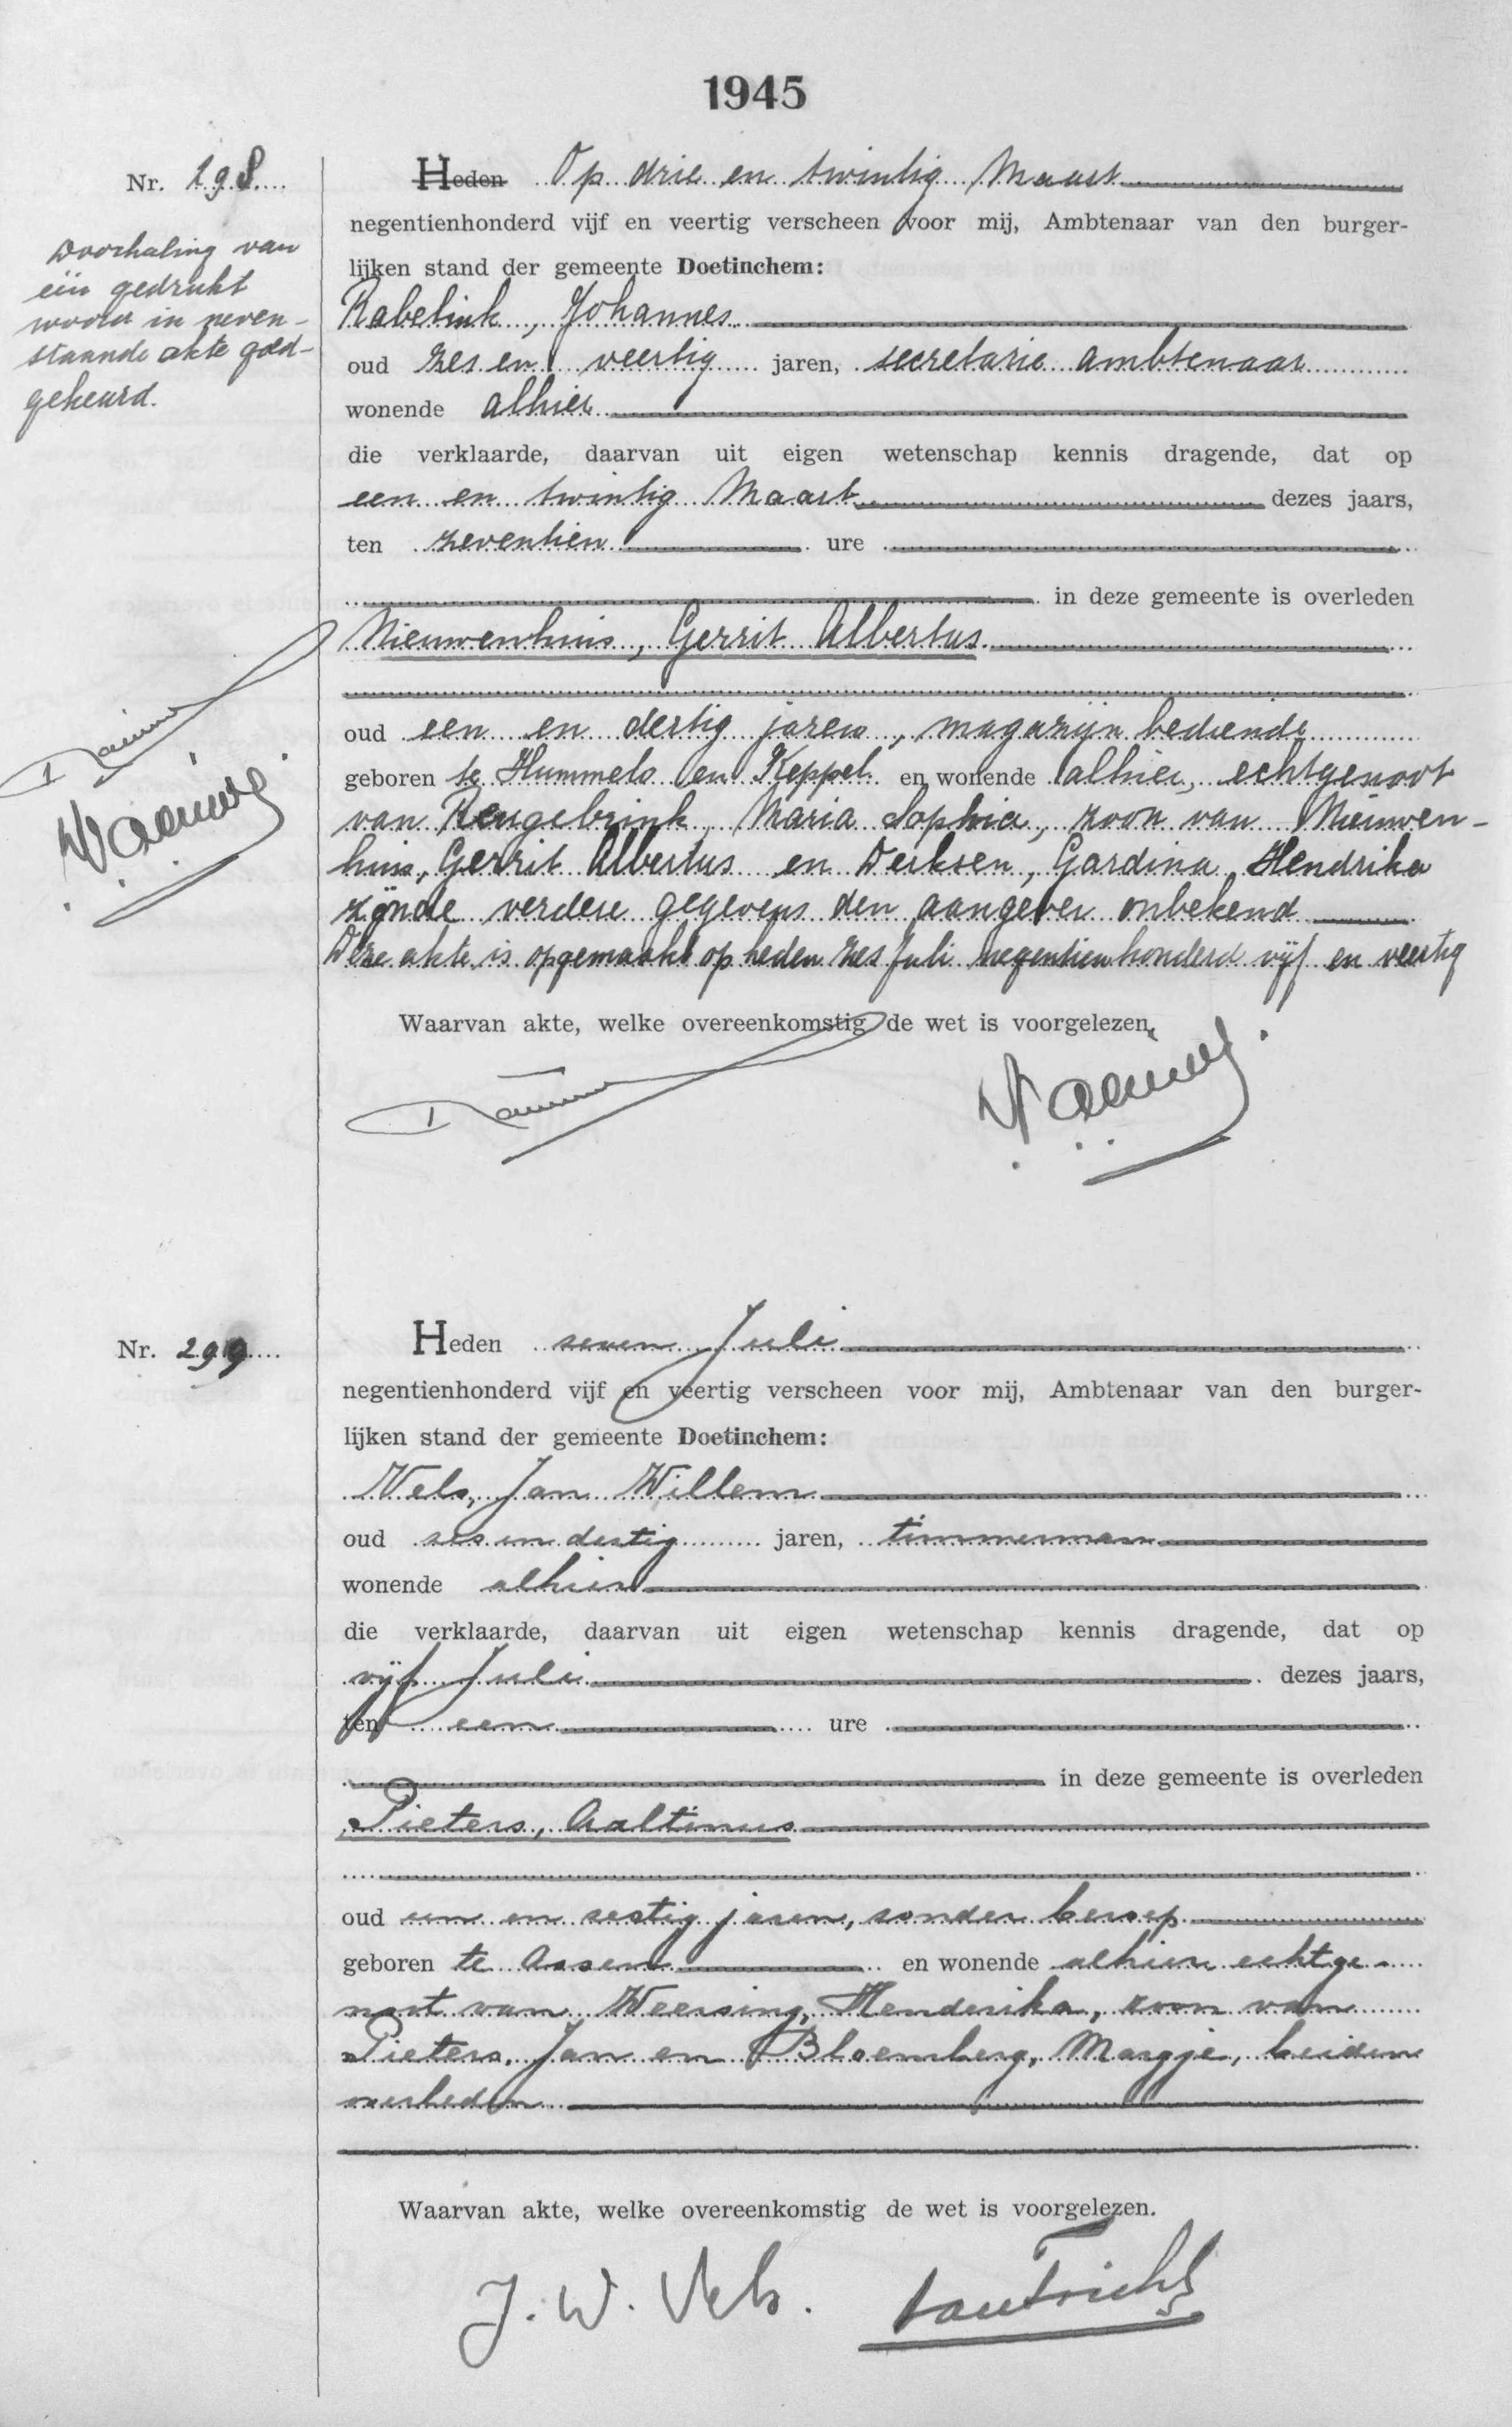 1945
Nr. 298
Doorhaling van
één gedrukt
woord in neven-
staande akte goed-
gekeurd.
Heden Op drie en twintig Maart
negentienhonderd vijf en veertig verscheen voor mij, Ambtenaar van den burger-
lijken stand der gemeente Doetinchem:
Rabelink, Johannes
oud zes en veertig jaren, secretarie ambtenaar
wonende alhier
die verklaarde, daarvan uit eigen wetenschap kennis dragende, dat op
een en twintig Maart dezes jaars,
ten zeventien ure
in deze gemeente is overleden
Nieuwenhuis, Gerrit Albertus
oud een en dertig jaren, magazijn bediende
geboren te Hummelo en Keppel en wonende alhier, echtgenoot
van Rengebrink, Maria Sophia, zoon van Nieuwen-
huis, Gerrit Albertus en Derksen, Gardina Hendrika
zijnde verdere gegevens den aangever onbekend
Deze akte is opgemaakt op heden zes Juli negentienhonderd vijf en veertig
Waarvan akte, welke overeenkomstig de wet is voorgelezen.
Nr. 299
Heden zeven Juli
negentienhonderd vijf en veertig verscheen voor mij, Ambtenaar van den burger-
lijken stand der gemeente Doetinchem:
Vels, Jan Willem
oud zes en dertig jaren, timmerman
wonende alhier
die verklaarde, daarvan uit eigen wetenschap kennis dragende, dat op
vijf Juli dezes jaars,
ten een ure
in deze gemeente is overleden
Pieters, Aaltinus
oud een en zestig jaren, zonder beroep
geboren te Assen en wonende alhier echtge-
noot van Weersing, Henderika, zoon van
Pieters, Jan en Bloemberg, Margje, beiden
overleden
Waarvan akte, welke overeenkomstig de wet is voorgelezen.
J. W. Vels.